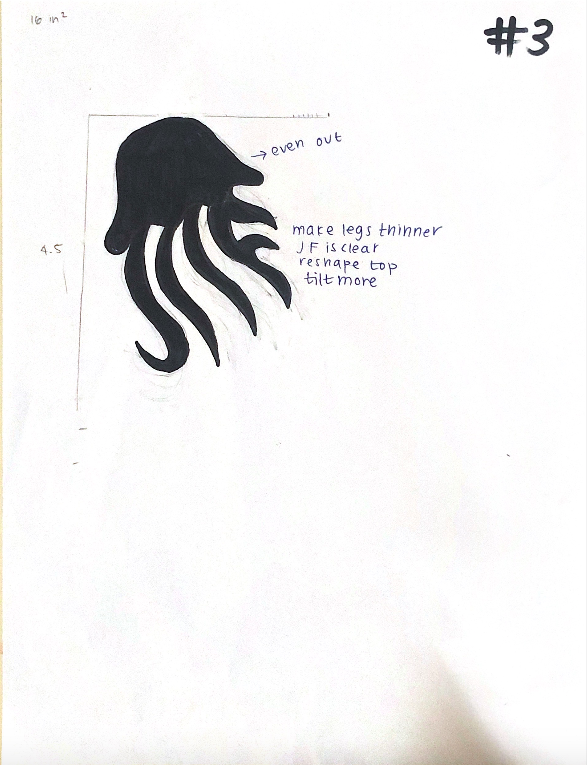 16 in²
#3
→ even out
4.5
make legs thinner
JF is clear
reshape top
tilt more